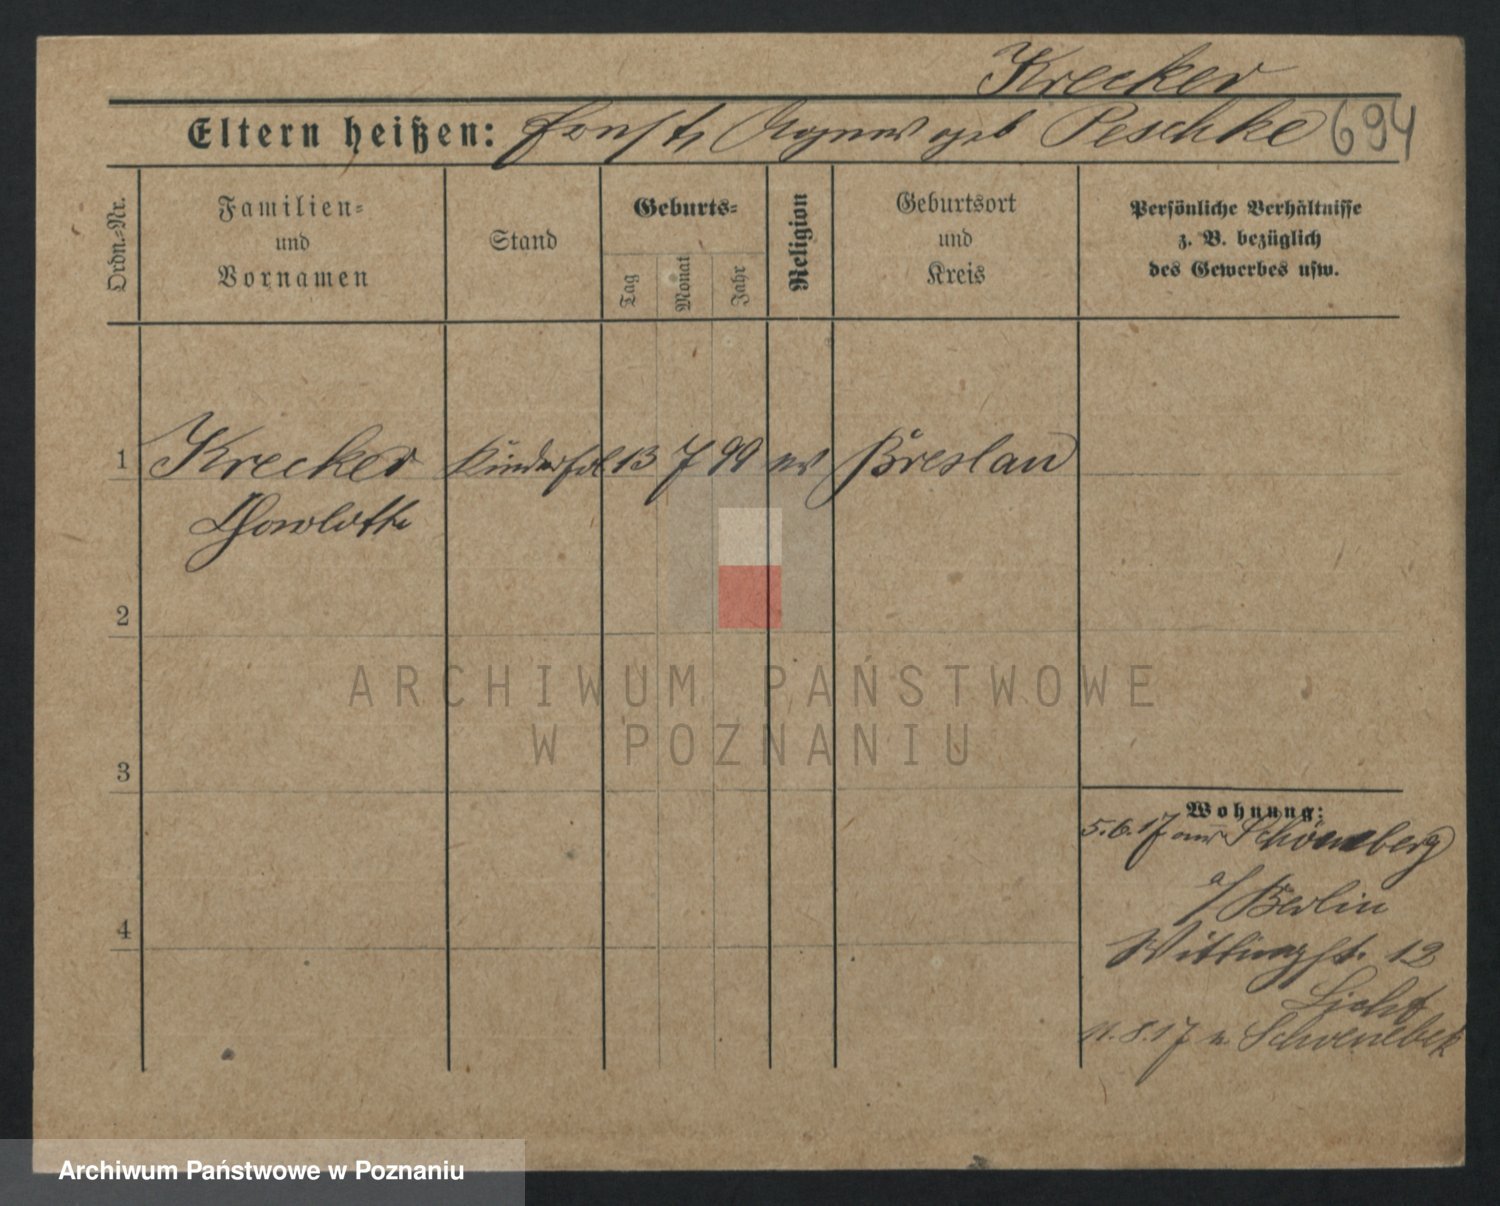 Krecker
Eltern heißen: Ernst, Agnes geb Peschke 694
Ordn.-Nr.
Familien-
und
Vornamen
Stand
Geburts-
Tag
Monat
Jahr
Religion
Geburtsort
und
Kreis
Persönliche Verhältnisse
z. B. bezüglich
des Gewerbes usw.
1 Krecker Kinderfrl 13 7 99 ev Breslau
Charlotte
2
3
4
Wohnung:
5.6.17 aus Schöneberg
a/Berlin
12
Licht
11.8.17 n. Schoenebek
ARCHIWUM PAŃSTWOWE
W POZNANIU
Archiwum Państwowe w Poznaniu